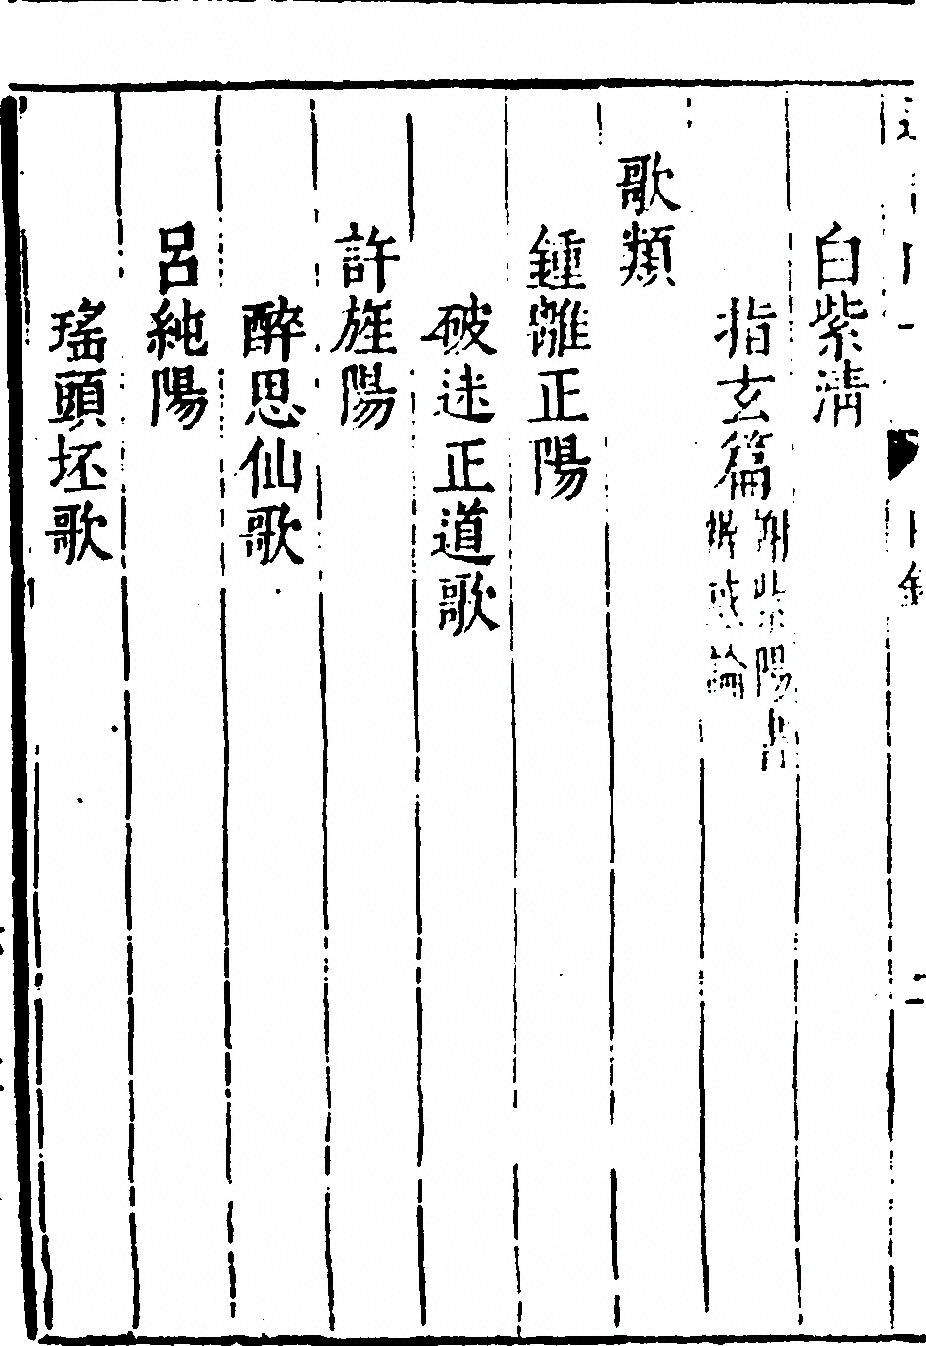 白紫清
指玄篇 謝紫陽書
惑論
歌類
鍾離正陽
破迷正道歌
許旌陽
醉思仙歌
呂純陽
瑤頭坯歌